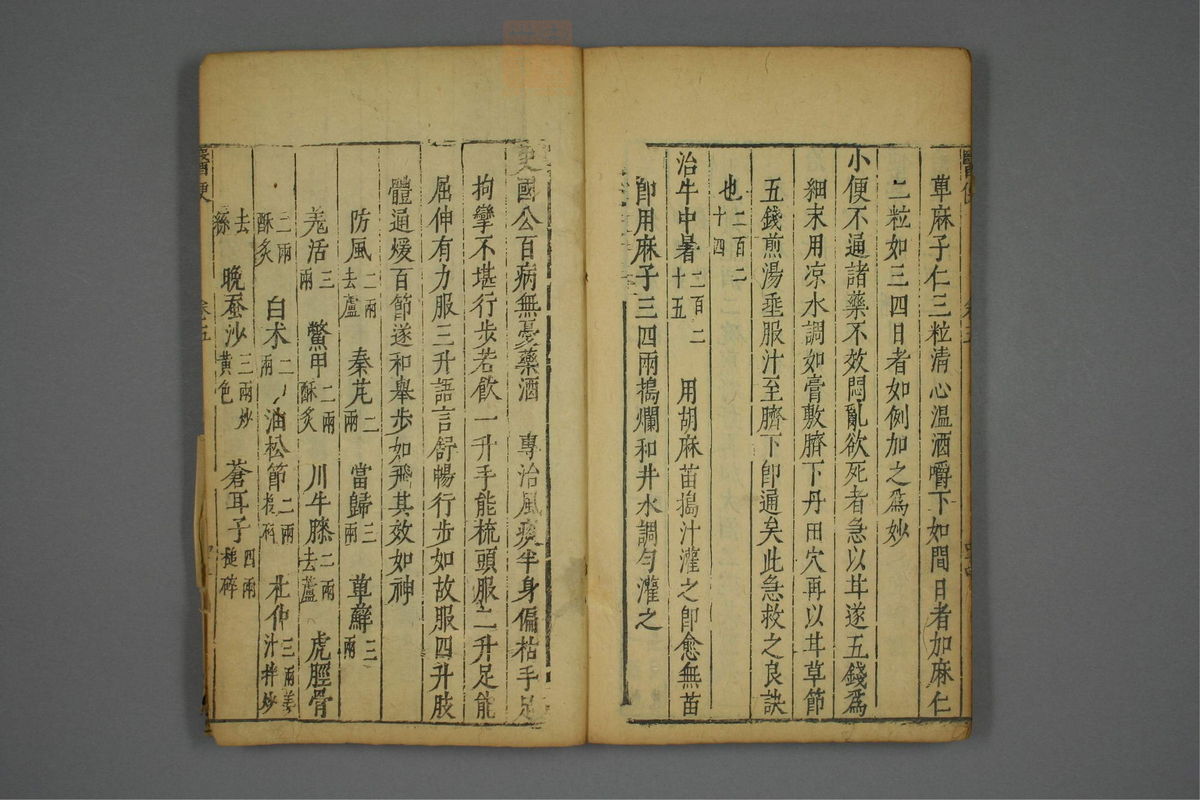 草麻子仁三粒清心溫酒嚼下如間日者加麻仁
二粒如三四日者如例加之爲妙
小便不通諸藥不效悶亂欲死者急以甘遂五錢爲
細末用凉水調如膏敷臍下丹田穴再以甘草節
五錢煎湯乖服汁至臍下卽通矣此急救之良訣
也二百二十四
治牛中暑二百二十五 用胡麻苗搗汁灌之卽愈無苗
卽用麻子三四兩搗爛和井水調勻灌之
史國公百病無憂藥酒 專治風痰半身偏枯手足
拘攣不堪行步若飲一升手能梳頭服二升足能
屈伸有力服三升語言舒暢行步如故服四升肢
體通煖百節遂和舉步如飛其效如神
防風二兩去蘆 秦芃二兩 當歸三兩 萆薢三兩
羌活三兩 鱉甲二兩酥炙 川牛膝二兩去蘆 虎脛骨
二兩酥炙 白术二兩 油松節二兩 杜仲三兩姜汁拌炒
去絲 晚蚕沙三兩炒黃色 蒼耳子四兩槌碎
醫便 卷五